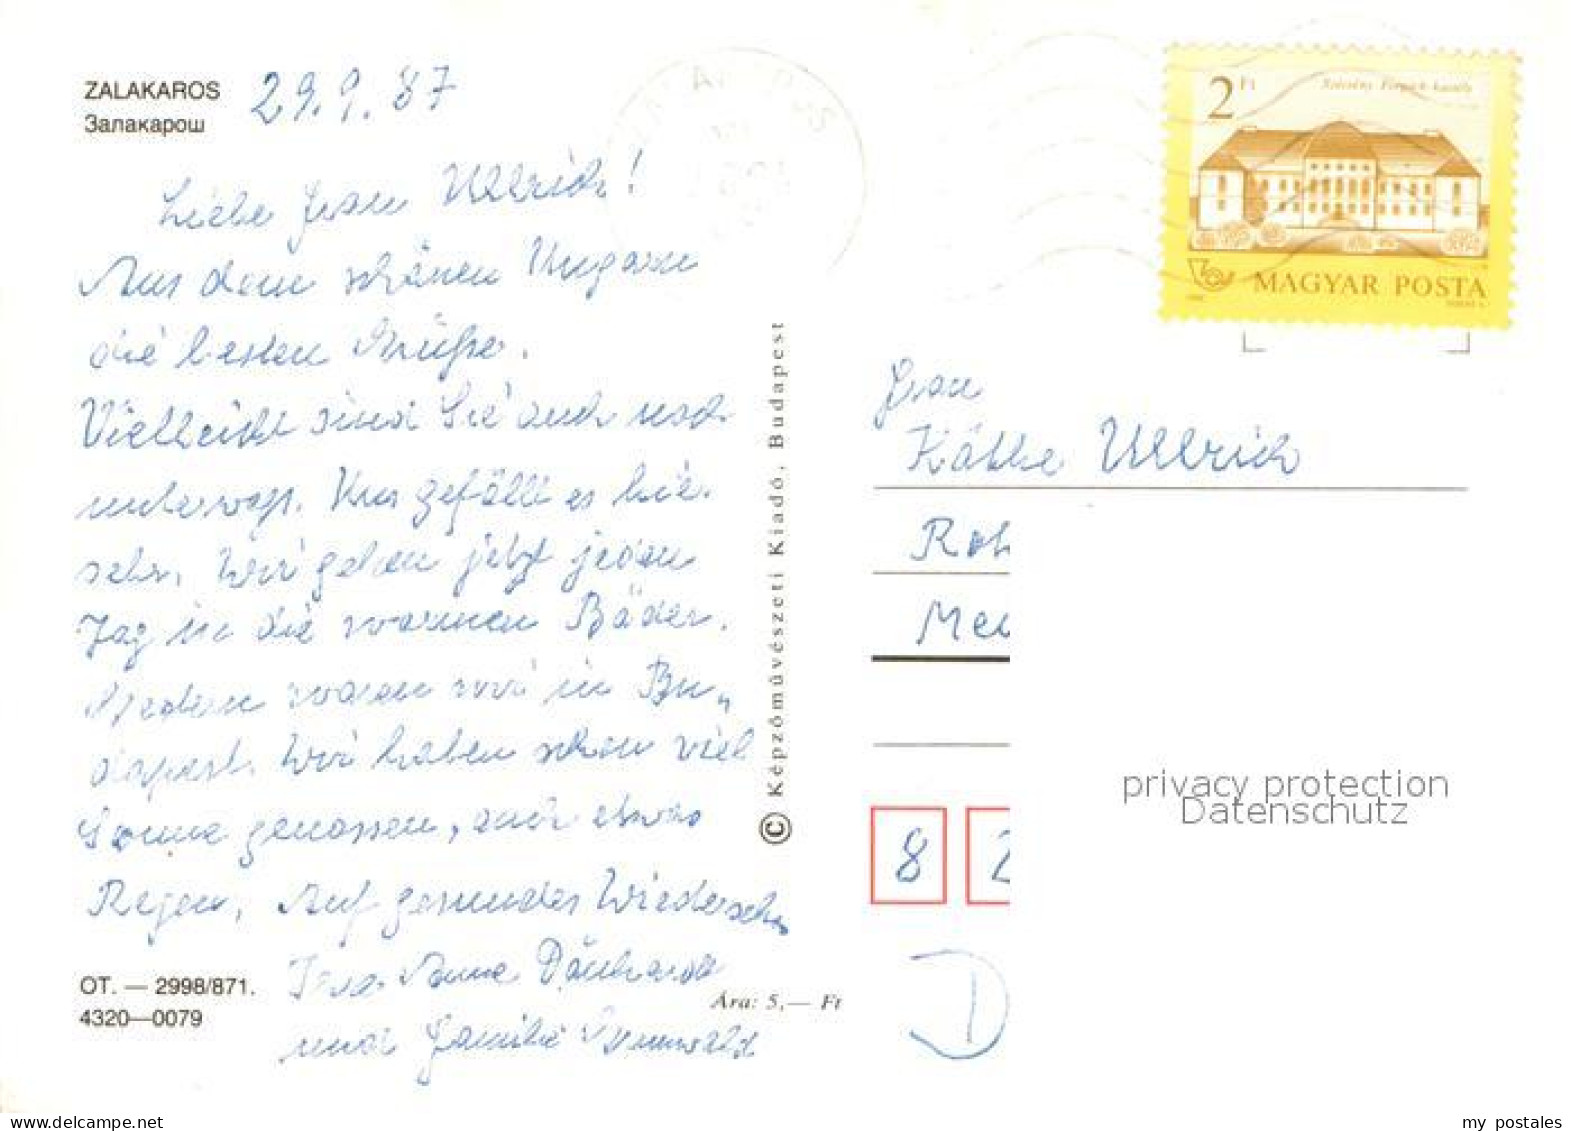 ZALAKAROS 29.9.87
Залакарош
Liebe Frau Ullrich!
Aus dem schönen Ungarn
die besten Grüße.
Vielleicht sind Sie auch noch
unterwegs. Uns gefällt es hier
sehr. Wir gehen jetzt jeden
Tag in die warmen Bäder.
Gestern waren wir in Bu„
dapest. Wir haben schon viel
Sonne genossen, auch etwas
Regen. Auf gesundes Wiedersehn
Ihre Anne Dänhardt
und Familie
OT. — 2998/871.
4320—0079
Ára: 5,— Ft
© Képzőművészeti Kiadó, Budapest
2 Ft
Szécsény Forgách-kastély
MAGYAR POSTA
Frau
Käthe Ullrich
Roh
Mei
8 2
D
privacy protection
Datenschutz
my postales